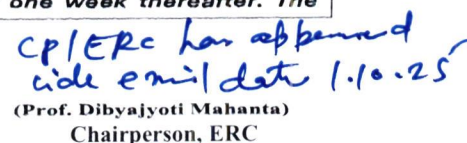 one week thereafter. The
CP/ERC has approved
vide email date 1.10.25
(Prof. Dibyajyoti Mahanta)
Chairperson, ERC